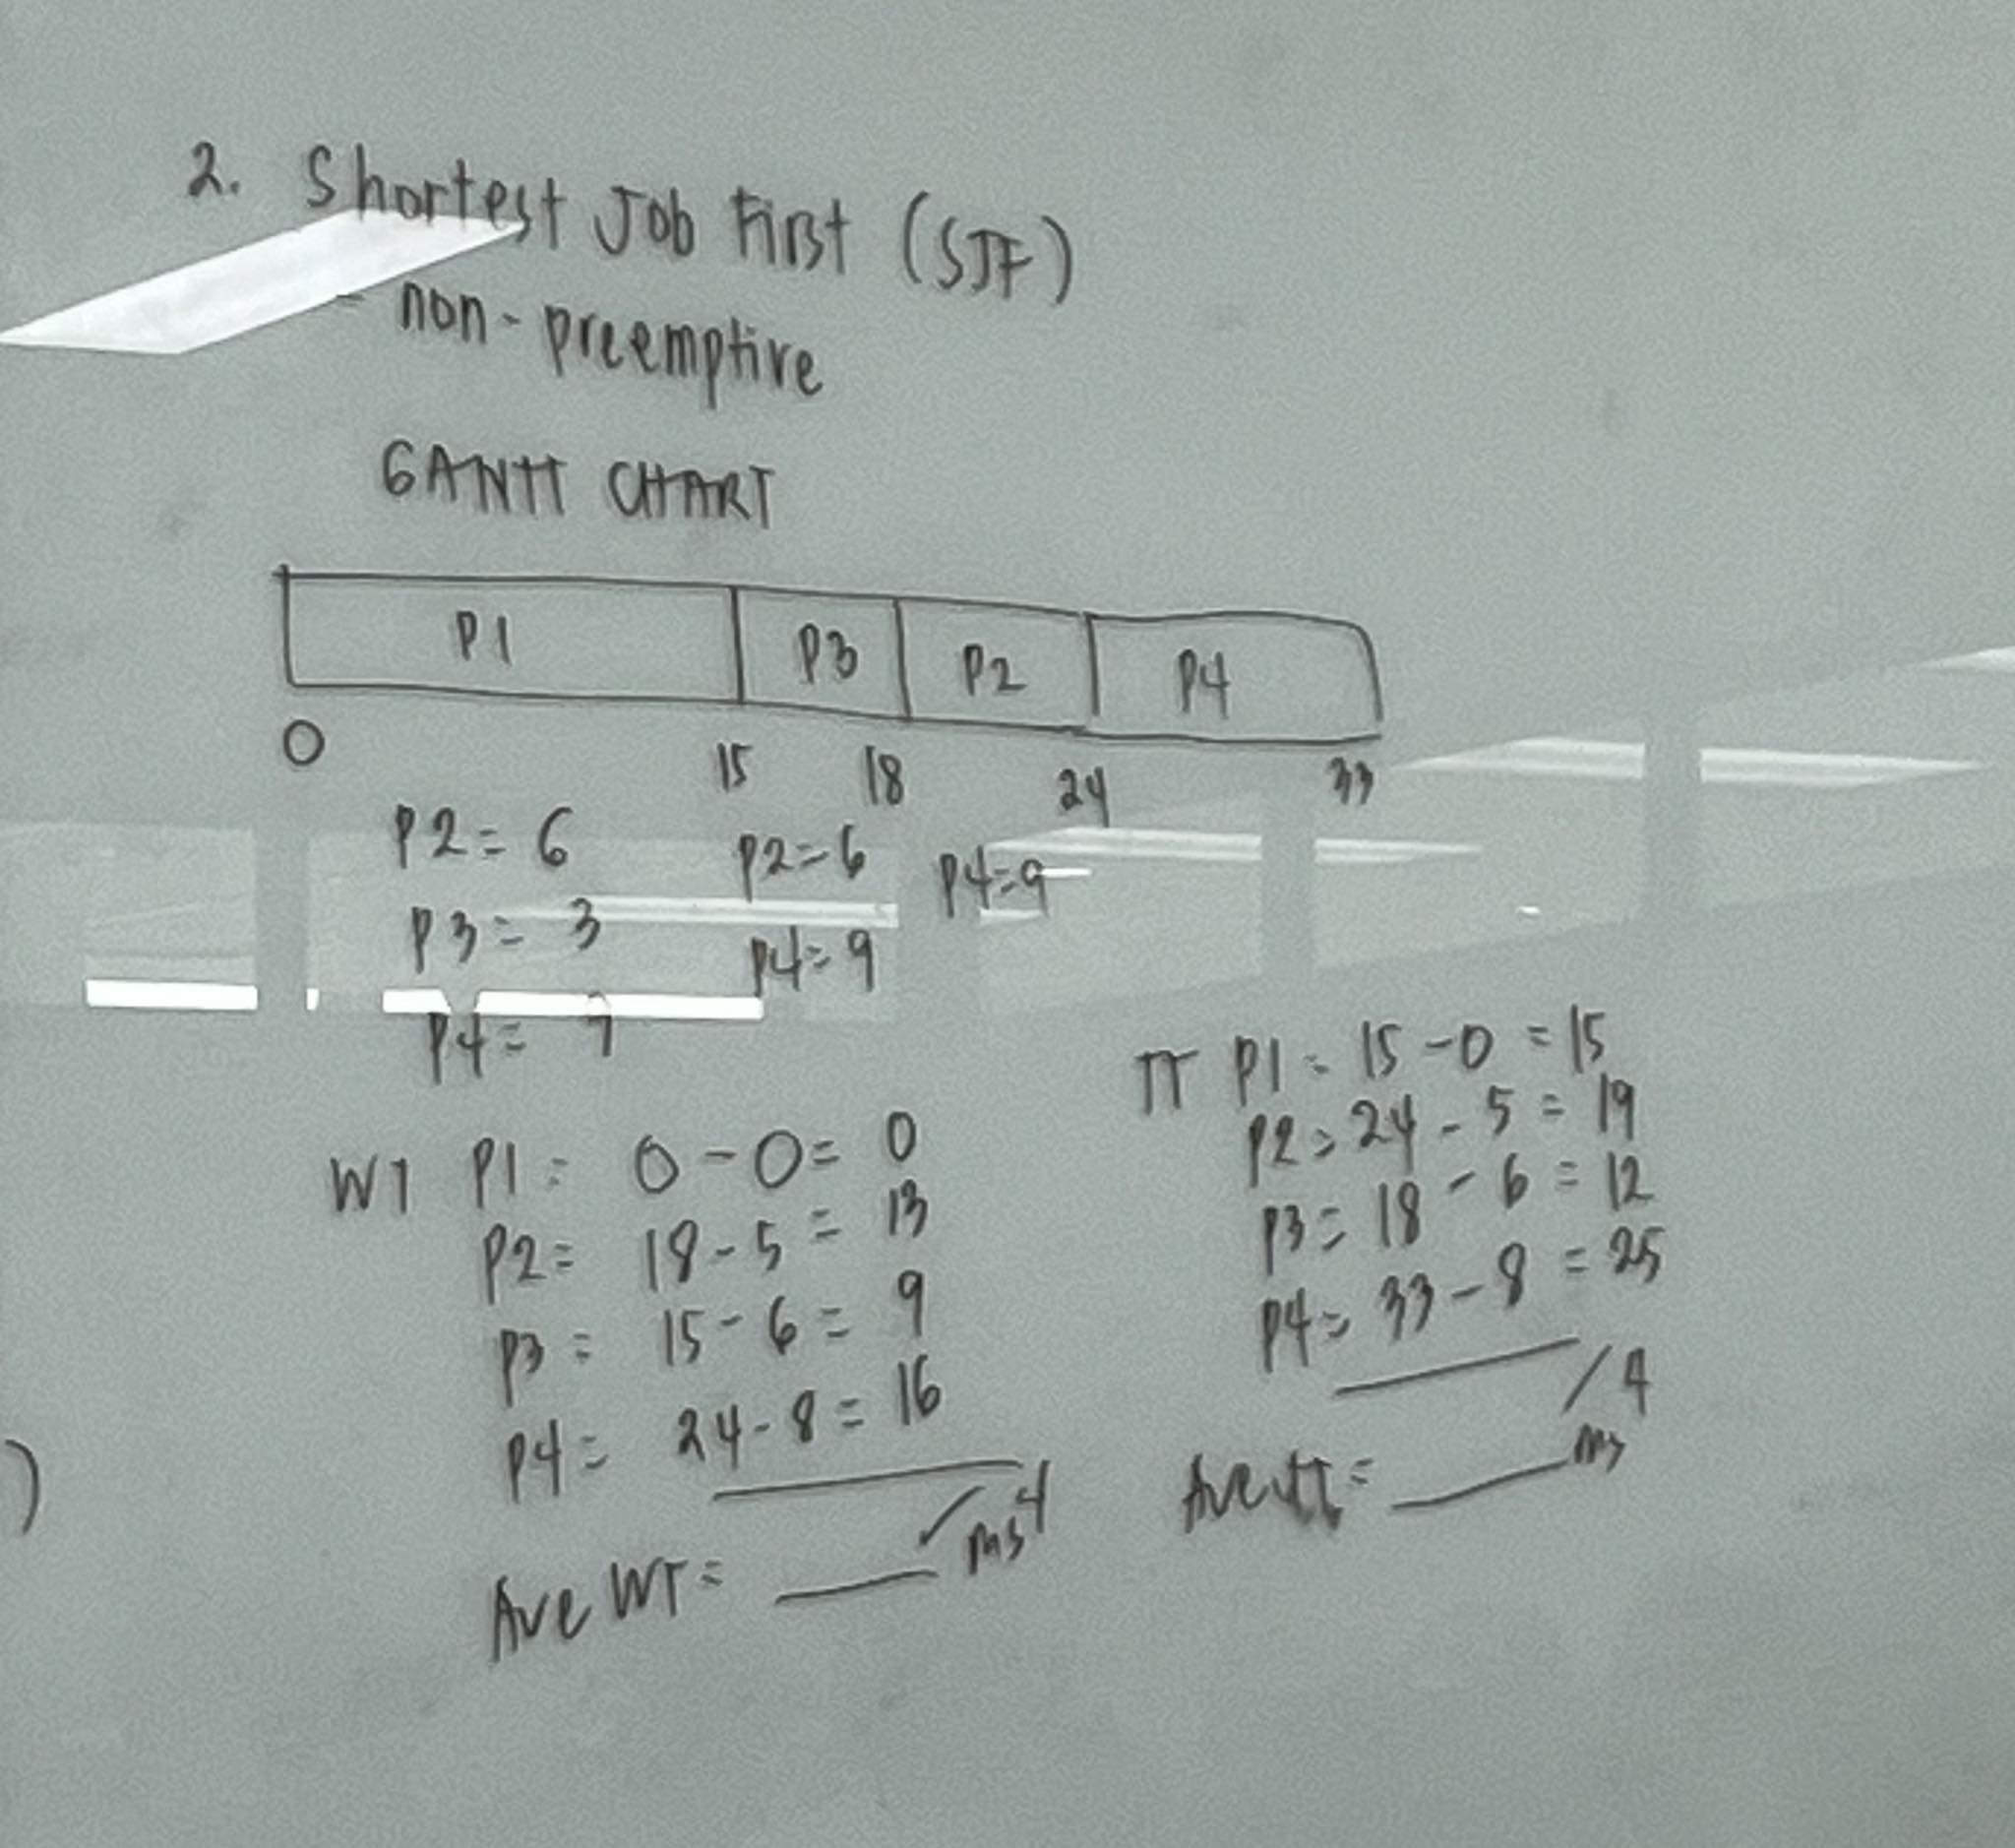 2. Shortest Job First (SJF)
- non-preemptive
GANTT CHART
P1 P3 P2 P4
0 15 18 24 33
P2 = 6 P2 = 6 P4 = 9
P3 = 3 P4 = 9
P4 =
WT P1 = 0 - 0 = 0
P2 = 18 - 5 = 13
P3 = 15 - 6 = 9
P4 = 24 - 8 = 16
/4
Ave WT = ____ ms
TT P1 = 15 - 0 = 15
P2 = 24 - 5 = 19
P3 = 18 - 6 = 12
P4 = 33 - 8 = 25
/4
Ave TT = ____ ms
)